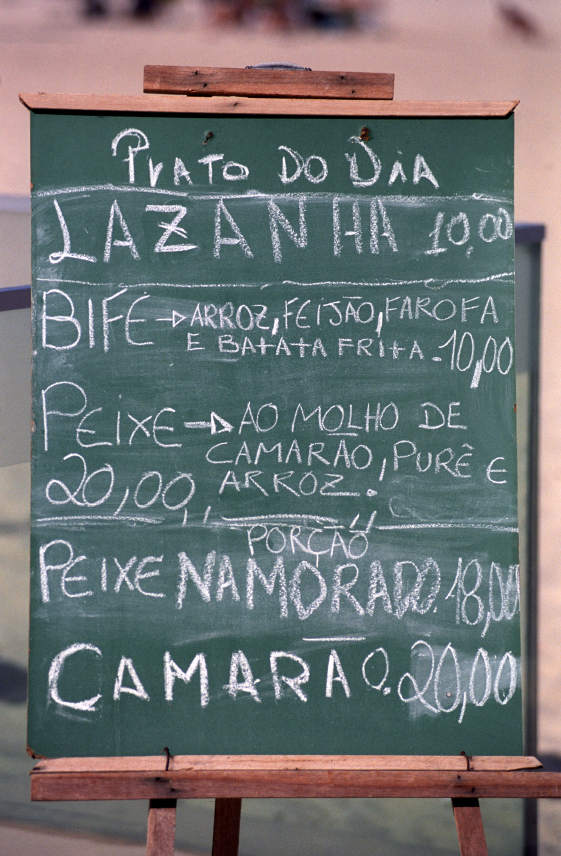 Prato do Dia
LAZANHA 10,00
BIFE → ARROZ, FEIJÃO, FAROFA
E BATATA FRITA. 10,00
PEIXE → AO MOLHO DE
CAMARÃO, PURÊ E
20,00, ARROZ.
PORÇÃO
PEIXE NAMORADO. 18,00
CAMARÃO. 20,00